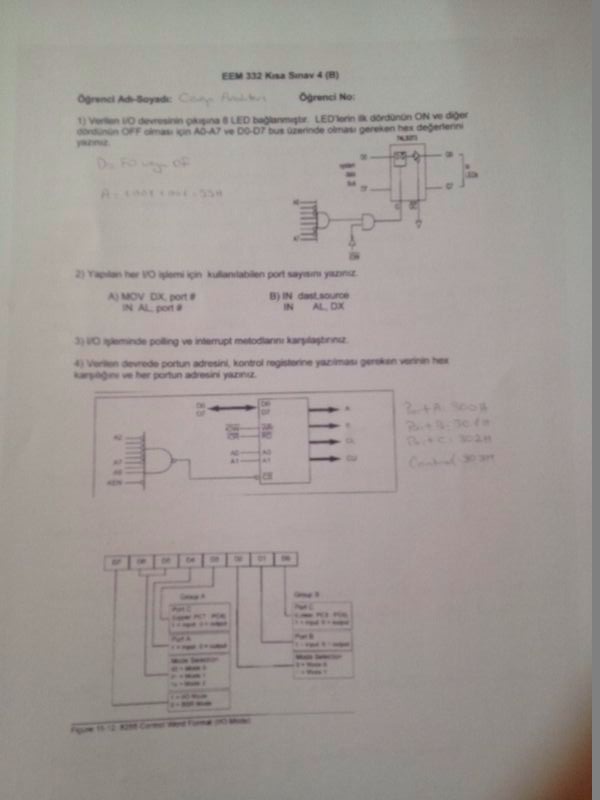 EEM 332 Kısa Sınav 4 (B)
Öğrenci Adı-Soyadı: Öğrenci No:
1) Verilen I/O devresinin çıkışına 8 LED bağlanmıştır. LED'lerin ilk dördünün ON ve diğer
dördünün OFF olması için A0-A7 ve D0-D7 bus üzerinde olması gereken hex değerlerini
yazınız.
74LS373
system
data
bus
D0
D7
Q0
Q7
G
OC
A0
A7
IOW
2) Yapılan her I/O işlemi için kullanılabilen port sayısını yazınız.
A) MOV DX, port #
IN AL, port #
B) IN dest,source
IN AL, DX
3) I/O işleminde polling ve interrupt metodlarını karşılaştırınız.
4) Verilen devrede portun adresini, kontrol registerine yazılması gereken verinin hex
karşılığını ve her portun adresini yazınız.
D0
D7
D0
D7
IOW WR
IOR RD
A0 A0
A1 A1
CS
A
B
CL
CU
A2
A7
A8
AEN
Port A: 300H
Port B: 301H
Port C: 302H
Control: 303H
D7 D6 D5 D4 D3 D2 D1 D0
Group A
Port C
(Upper PC7 - PC4)
1 = input, 0 = output
Port A
1 = input, 0 = output
Mode Selection
00 = Mode 0
01 = Mode 1
1x = Mode 2
1 = I/O Mode
0 = BSR Mode
Group B
Port C
(Lower PC3 - PC0)
1 = input, 0 = output
Port B
1 = input, 0 = output
Mode Selection
0 = Mode 0
1 = Mode 1
Figure 11-12. 8255 Control Word Format (I/O Mode)